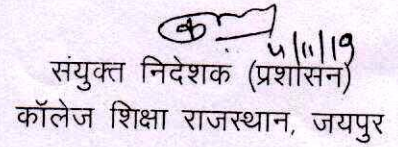 4/11/19
संयुक्त निदेशक (प्रशासन)
कॉलेज शिक्षा राजस्थान, जयपुर